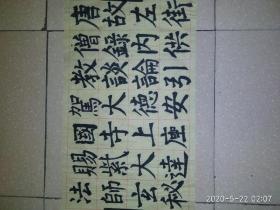 唐故左街
僧錄內供
教談論引
駕大德安
國寺上座
賜紫大達
法師玄秘
2020-5-22 02:07